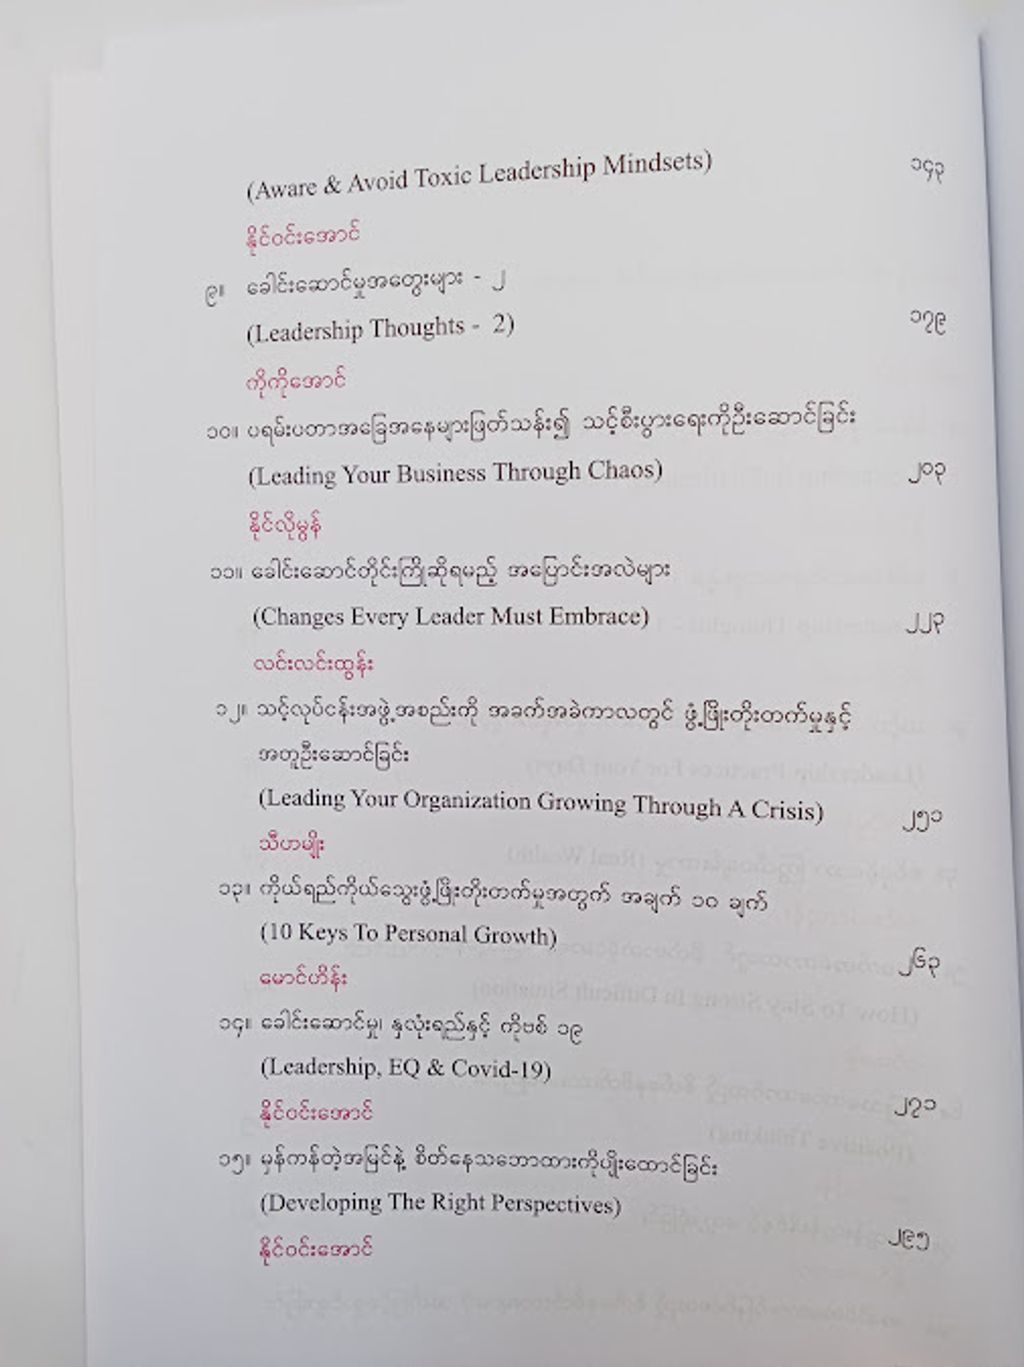 (Aware & Avoid Toxic Leadership Mindsets) ၁၄၃
နိုင်ဝင်းအောင်
၉။ ခေါင်းဆောင်မှုအတွေးများ - ၂
(Leadership Thoughts - 2) ၁၇၉
ကိုကိုအောင်
၁၀။ ပရမ်းပတာအခြေအနေများဖြတ်သန်း၍ သင့်စီးပွားရေးကိုဦးဆောင်ခြင်း
(Leading Your Business Through Chaos) ၂၀၃
နိုင်လိုမွန်
၁၁။ ခေါင်းဆောင်တိုင်းကြိုဆိုရမည့် အပြောင်းအလဲများ
(Changes Every Leader Must Embrace) ၂၂၃
လင်းလင်းထွန်း
၁၂။ သင့်လုပ်ငန်းအဖွဲ့အစည်းကို အခက်အခဲကာလတွင် ဖွံ့ဖြိုးတိုးတက်မှုနှင့်
အတူဦးဆောင်ခြင်း
(Leading Your Organization Growing Through A Crisis) ၂၅၁
သီဟမျိုး
၁၃။ ကိုယ်ရည်ကိုယ်သွေးဖွံ့ဖြိုးတိုးတက်မှုအတွက် အချက် ၁၀ ချက်
(10 Keys To Personal Growth) ၂၆၃
မောင်ဟိန်း
၁၄။ ခေါင်းဆောင်မှု၊ နှလုံးရည်နှင့် ကိုဗစ် ၁၉
(Leadership, EQ & Covid-19) ၂၇၁
နိုင်ဝင်းအောင်
၁၅။ မှန်ကန်တဲ့အမြင်နဲ့ စိတ်နေသဘောထားကိုပျိုးထောင်ခြင်း
(Developing The Right Perspectives) ၂၉၅
နိုင်ဝင်းအောင်